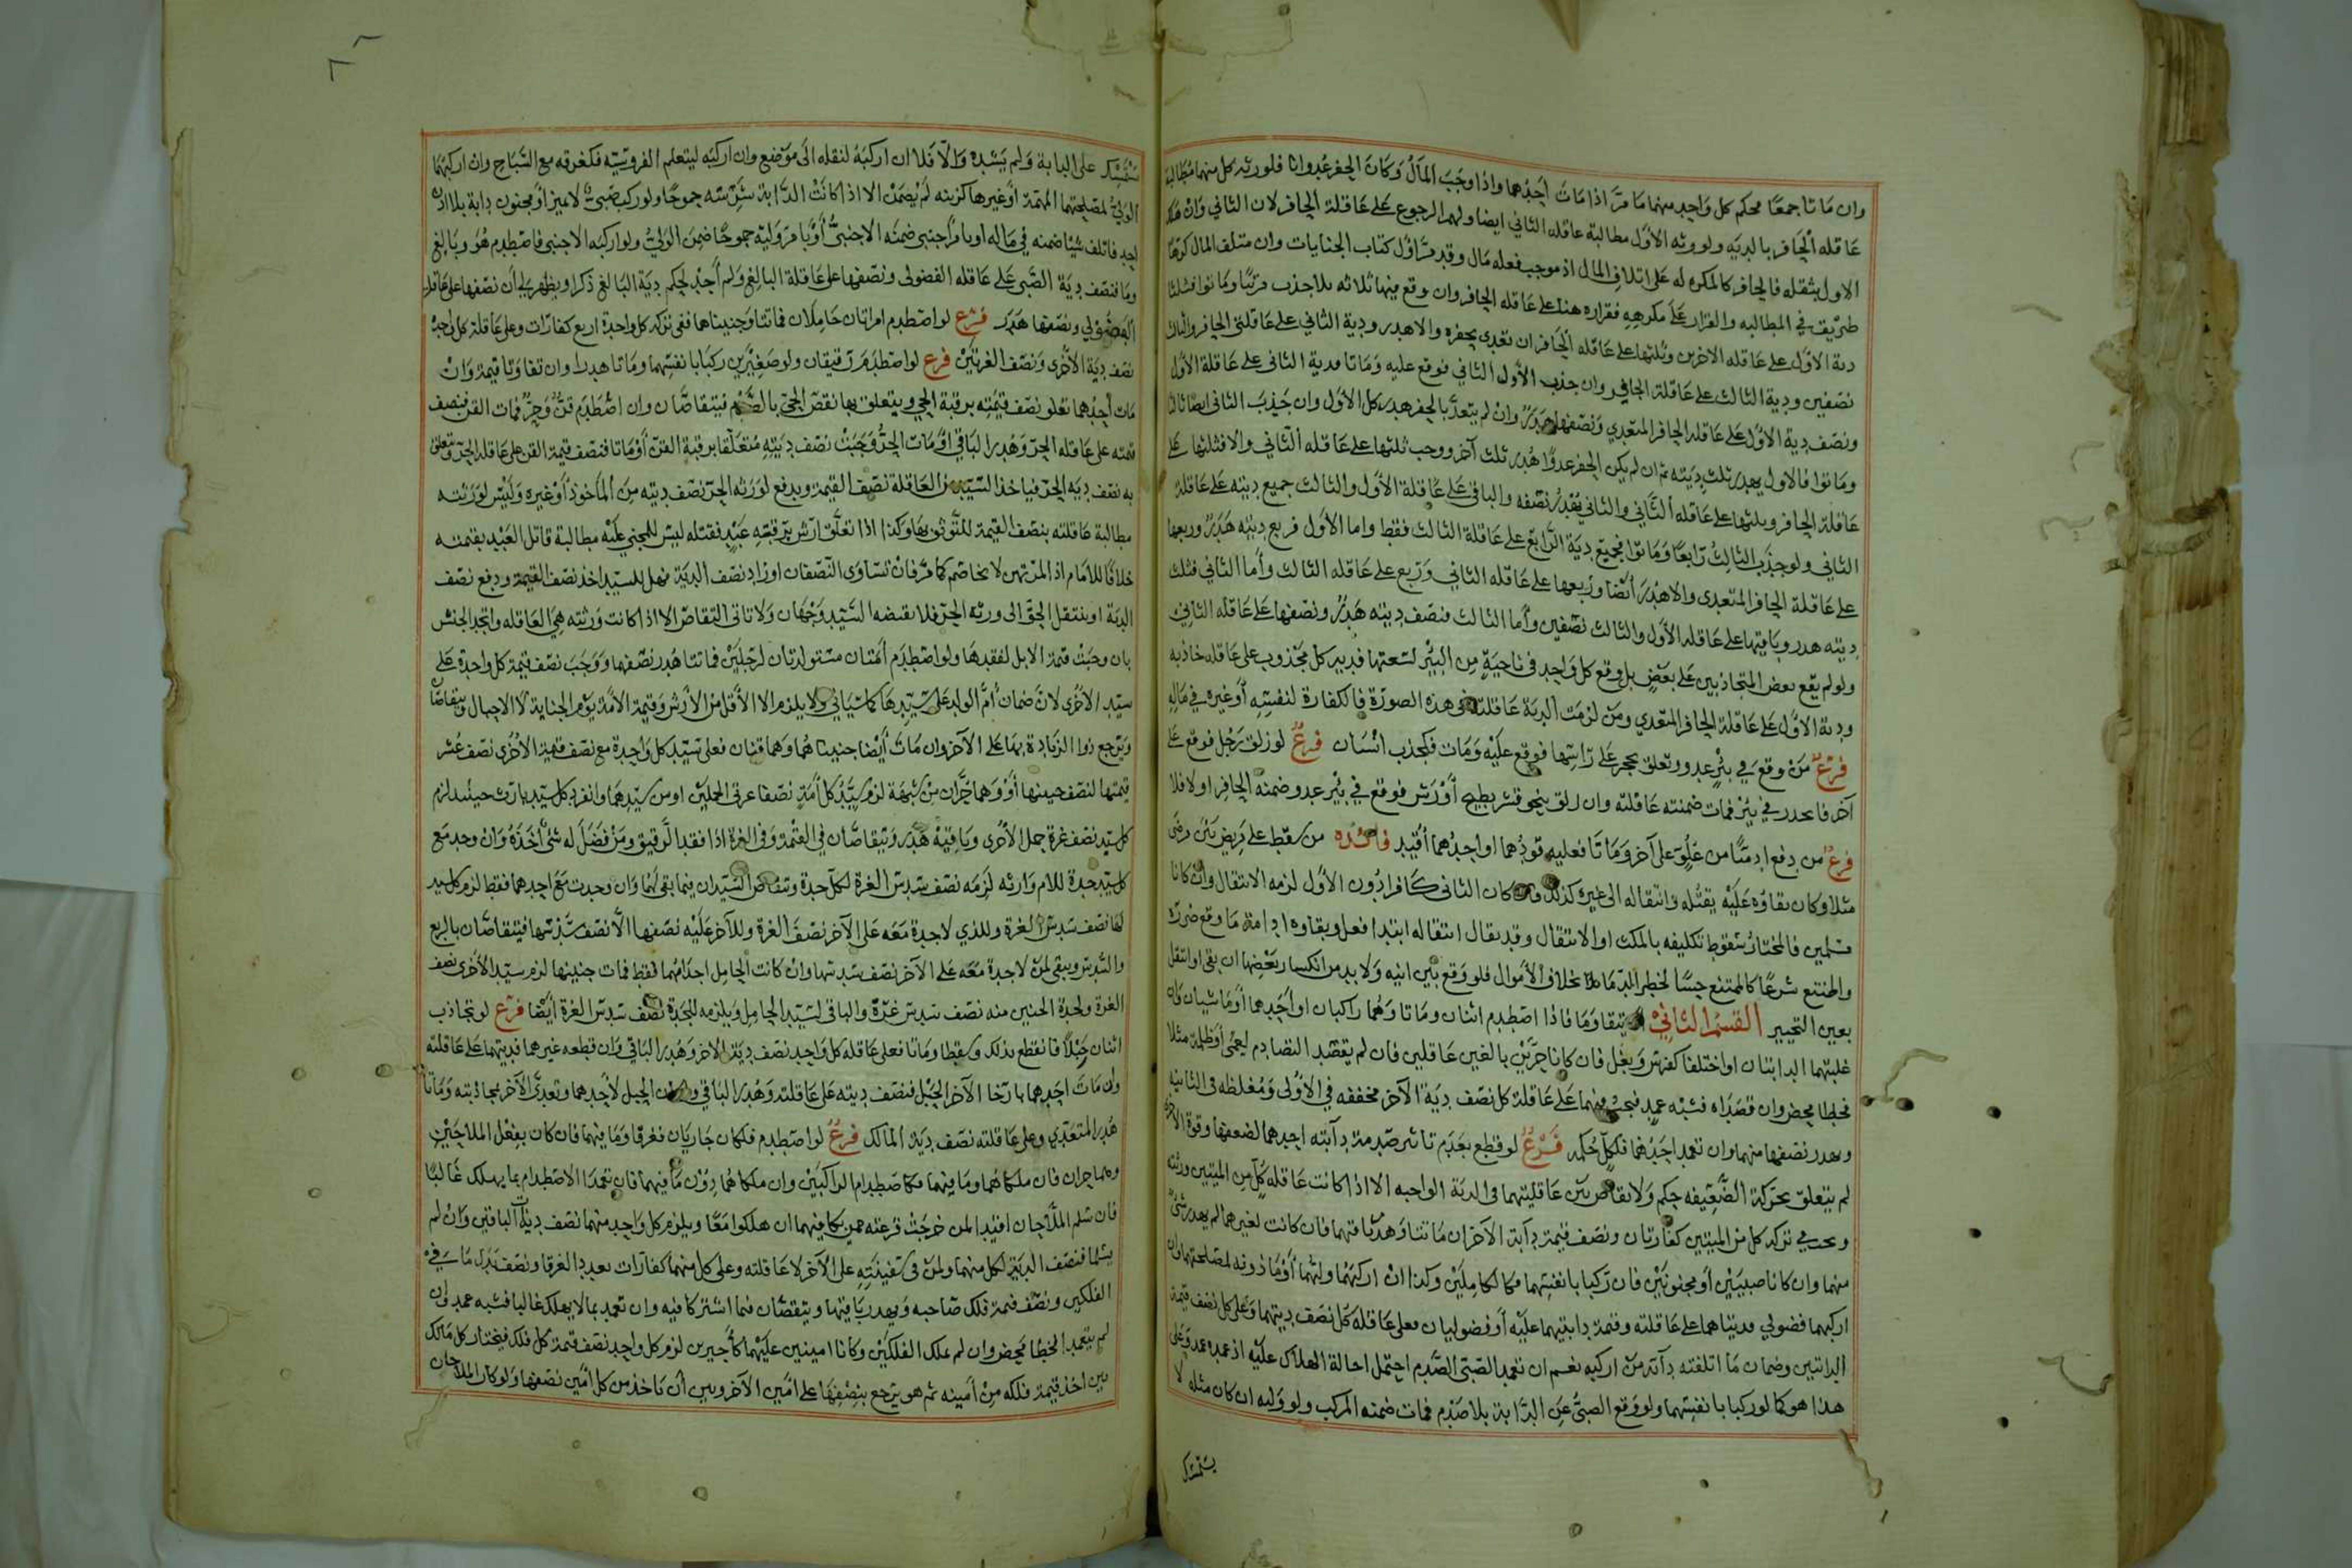 وان ماتا جمعا فحكم كل واحد منهما ما مرّ اذا مات احدهما واذا وجب المال وكان الحفر عدوانا فلورثه كل منهما مطالبة
عاقله الحافر بالديه ولورثه الاول مطالبة عاقله الثاني ايضا ولهم الرجوع على عاقلة الحافر لان الثاني وان هلك
الاول بثقله فالحافر كالمكره له على اتلاف المال اذ موجب فعله مال وقد مرّ اول كتاب الجنايات وان متلف المال كرها
طريق في المطالبه والقرار على مكرهه فقراره هنا على عاقله الحافر وان وقع فيها ثلاثه بلا جذب مرتبا وماتوا فثلثا
دية الاول على عاقله الاخرين وثلثها على عاقله الحافر ان تعدى بحفره والا هدر ودية الثاني على عاقلتي الحافر والثالث
نصفين ودية الثالث على عاقلة الحافر وان جذب الاول الثاني فوقع عليه وماتا فدية الثاني على عاقلة الاول
ونصف دية الاول على عاقله الحافر المتعدي ونصفها هدر وان لم يتعد بالحفر هدر كل الاول وان جذب الثاني ايضا ثالثا
وماتوا فالاول يهدر ثلث ديته ثم ان لم يكن الحفر عدوا هدر ثلث آخر ووجب ثلثها على عاقله الثاني والا فثلثها على
عاقلة الحافر وثلثها على عاقله الثاني والثاني يهدر نصفه والباقي على عاقلة الاول والثالث جميع ديته على عاقلة
الثاني ولو جذب الثالث رابعا وماتوا فجميع دية الرابع على عاقلة الثالث فقط واما الاول فربع ديته هدر وربعها
على عاقلة الحافر المتعدى والا هدر ايضا وربعها على عاقله الثاني وربع على عاقله الثالث وأما الثاني فثلث
ديته هدر وباقيها على عاقله الاول والثالث نصفين وأما الثالث فنصف ديته هدر ونصفها على عاقله الثاني
ولو لم يقع بعض المتجاذبين على بعض بل وقع كل واحد في ناحية من البئر لسعتها فدية كل مجذوب على عاقله جاذبه
ودية الاول على عاقلة الحافر المتعدي ومن لزمت الدية عاقلته في هذه الصورة فالكفارة لنفسه أو غيره في ماله
فرع من وقع في بئر عدو وتعلق بحجر على راسها فوقع عليه ومات فكجذب انسان فرع لو زلق رجل فوقع على
آخر فانحدر في بئر فمات ضمنته عاقلته وان زلق بنحو قشر بطيخ أو رش فوقع في بئر عدو ضمنه الحافر او لا فلا
فرع من دفع ادميا من علو على آخر وماتا فعليه قودهما او احدهما أقيد فائده من سقط على مريض بين مرضى
مثلا وكان بقاؤه عليه يقتله وانتقاله الى غيره كذلك فان كان الثاني كافرا دون الاول لزمه الانتقال وان كانا
مسلمين فالمختار سقوط تكليفه بالمكث او الانتقال وقد يقال انتقاله ابتدا فعل وبقاوه ادامة ما وقع ضرره
والممتنع شرعا كالممتنع حسا لخطر الدما بخلاف الأموال فلو وقع بين انيه ولا بد من انكسار بعضها ان بقى او انتقل
بعين التخيير القسم الثاني ان يتقاوما فاذا اصطدم اثنان وماتا وهما راكبان او احدهما أو ماشيان فان
غلبتهما الدابتان او اختلفا كفرس وبغل فان كانا حرين بالغين عاقلين فان لم يقصد التصادم لعمى أو ظلمة مثلا
فخطا محض وان قصداه فشبه عمد فيجب فيهما على عاقلة كل نصف دية الآخر مخففه في الاولى ومغلظه في الثانيه
ويهدر نصفها منهما وان تعمد احدهما فلكل حكمه فرع لو قطع بعدم تاثير صدمة دآبته احدهما لضعفها وقوة الاخرى
لم يتعلق بحركة الضعيفه حكم ولا تقاص بين عاقلتيهما في الدية الواجبه الا اذا كانت عاقله كل من الميتين ورثته
ويجب في تركه كل من الميتين كفارتان ونصف قيمة دآبة الآخر ان ماتتا وهدر باقيهما فان كانت لغيرهما لم يهدر شئ
منهما وان كانا صبيين أو مجنونين فان ركبا بانفسهما فكالكاملين وكذا ان اركبهما وليهما أو ماذونه لمصلحتهما وان
اركبهما فضولي فديتاهما على عاقلته وقيمة دابتيهما عليه أو فضوليان فعلى عاقله كل نصف ديتهما وعلى كل نصف قيمة
الدابتين وضمان ما اتلفته دآبة من اركبه نعم ان تعمد الصبي الصدم احتمل احالة الهلاك عليه اذ عمده عمد وعلى
هذا هو كما لو ركبا بانفسهما ولو وقع الصبي عن الدابة بلا صدم فمات ضمنه المركب ولو وليه ان كان مثله لا
يستمسك
يستمسك على الدابة ولم يشده والا فلا ان اركبه لنقله الى موضع وان اركبه ليتعلم الفروسيه فكغرقه مع السباح وان اركبهما
الولي لمصلحتهما المهمة أو غيرها كزينه لم يضمن الا اذا كانت الدابة شرسه جموحا ولو ركب صبي لا مميز أو مجنون دابة بلا اذن
احد فاتلف شيئا ضمنه في ماله او بامر أجنبي ضمنه الاجنبي أو بامر وليه جموحا ضمن الولي ولو اركبه الاجنبي فاصطدم هو وبالغ
وماتا فنصف دية الصبي على عاقله الفضولى ونصفها على عاقلة البالغ ولم أجد لحكم دية البالغ ذكرا ويظهر لي أن نصفها على عاقله
الفضولي ونصفها هدر فرع لو اصطدم امراتان حاملان فماتتا وجنيناهما ففى تركه كل واحدة اربع كفارات وعلى عاقلة كل واحدة
نصف دية الأخرى ونصف الغرتين فرع لو اصطدم رقيقان ولو صغيرين ركبا بانفسهما وماتا هدرا وان تفاوتا قيمة وان
مات أحدهما تعلق نصف قيمته برقبة الحي ويتعلق بها نقص الحي بالصدم فيتقاصان وان اصطدم قن وحر فمات القن فنصف
قيمته على عاقله الحر وهدر الباقي او مات الحر وجبت نصف ديته متعلقا برقبة القن أو ماتا فنصف قيمة القن على عاقله الحر ويتعلق
به نصف ديه الحر فياخذ السيد من العاقلة نصف القيمة ويدفع لورثه الحر نصف ديته من المأخوذ أو غيره وليس لورثته
مطالبة عاقلته بنصف القيمة للتوثق بها وكذا اذا تعلق ارش برقبته عبد فقتله ليس للمجني عليه مطالبة قاتل العبد بقيمته
خلافا للامام اذ المرتهن لا يخاصم كما مر فان تساوى النصفان او زاد نصف الدية فهل للسيد اخذ نصف القيمة ودفع نصف
الدية او ينتقل الحق الى ورثه الحر فلا يقبضه السيد وجهان ولا تاتى التقاص الا اذا كانت ورثته هي العاقله واتحد الجنس
بان وجبت قيمة الابل لفقدها ولو اصطدم أمتان مستولدتان لرجلين فماتتا هدر نصفهما ووجب نصف قيمة كل واحدة على
سيد الأخرى لان ضمان أم الولد على سيدها كما سياتي ولا يلزم الا الأقل من الأرش وقيمة الأمة يوم الجناية لا الاحبال ويتقاصا
ويرجع ذوا الزيادة بها على الآخر وان مات أيضا جنيناهما وهما قنان فعلى سيد كل واحدة مع نصف قيمة الأخرى نصف عشر
قيمتها لنصف جنينها أو وهما حران من شبهة لزم سيد كل أمة نصفا غرتى الحملين او من سيدهما وانفرد كل سيد بارث جنينه لزم
كل سيد نصف غرة حمل الأخرى وباقيه هدر ويتقاصان في القيمة وفي الغرة اذا فقد الرقيق ومن فضل له شئ اخذه وان وجد مع
كل سيد جدة للام وارثه لزمه نصف سدس الغرة لكل جدة ويتقاص السيدان فيما بقى لهما وان وجدت مع احدهما فقط لزم كل سيد
لها نصف سدس الغرة وللذي لا جدة معه على الآخر نصف الغرة وللآخر عليه نصفها الا نصف سدسها فيتقاصان بالربع
والسدس ويبقى لمن لا جدة معه على الآخر نصف سدسها وان كانت الحامل احداهما فقط فمات جنينها لزم سيد الأخرى نصف
الغرة ولجدة الجنين منه نصف سدس غرة والباقي لسيد الحامل ويلزمه للجدة نصف سدس الغرة أيضا فرع لو تجاذب
اثنان حبلا فانقطع بذلك وسقطا وماتا فعلى عاقله كل واحد نصف دية الآخر وهدر الباقي وان قطعه غيرهما فديتهما على عاقلته
وان مات احدهما بارخا الآخر الحبل فنصف ديته على عاقلته وهدر الباقي وان كان الحبل لأحدهما وتعدى الآخر بمجاذبته وماتا
هدر المتعدي وعلى عاقلته نصف دية المالك فرع لو اصطدم فلكان جاريان فغرقا وما فيهما فان كان بفعل الملاحين
وهما حران فان ملكاهما وما فيهما فكاصطدام الراكبين وان ملكاهما دون ما فيهما فان تعمدا الاصطدام بما يهلك غالبا
فان سلم الملاحان اقتيدا لمن خرجت قرعته ممن يكافيهما ان هلكوا معا ويلزم كل واحد منهما نصف ديات الباقين وان لم
يسلما فنصف الدية لكل منهما ولمن في سفينته على الآخر لا عاقلته وعلى كل منهما كفارات بعدد الغرقا ونصف بدل ما في
الفلكين ونصف قيمة فلك صاحبه ويهدر باقيها ويتقصان فيما اشتركا فيه وان تعمد بما لا يهلك غالبا فشبه عمد وان
لم يتعمدا لخطا محض وان لم يملك الفلكين وكانا امينين عليهما كأجيرين لزم كل واحد نصف قيمة كل فلك فيختار كل مالك
بين اخذ قيمة فلكه من أمينه ثم هو يرجع بنصفها على امين الآخر وبين أن ياخذ من كل امين نصفها ولو كان الملاحان